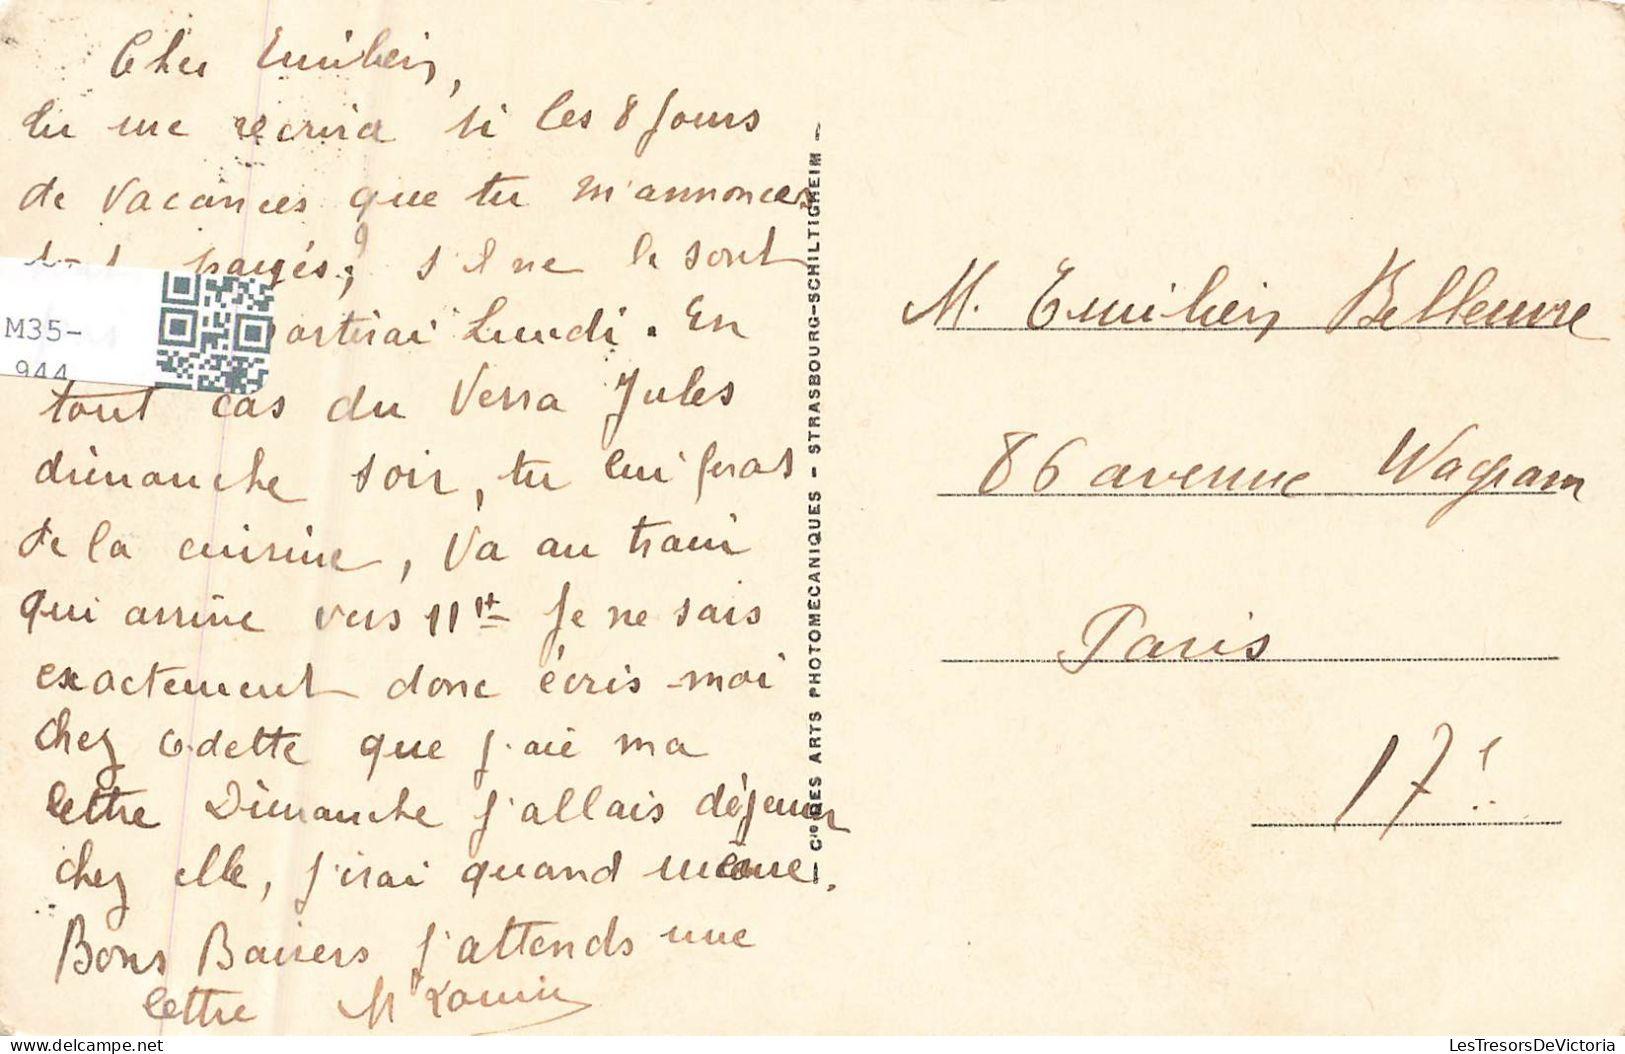 Cher Emilien,
tu me récrira si les 8 Jours
de Vacances que tu m'annonces
payés; s'il ne le sont
partirai Lundi. En
tout cas du Verra Jules
dimanche soir, tu lui feras
de la cuisine, Va au train
qui arrive vers 11 Je ne sais
exactement donc écris-moi
chez Odette que j'aie ma
lettre Dimanche j'allais déjeuner
chez elle, j'irai quand même.
Bons Baisers J'attends une
lettre
M35-
944
Cie DES ARTS PHOTOMECANIQUES - STRASBOURG-SCHILTIGHEIM -
M. Emilien Belleuvre
86 avenue Wagram
Paris
17e
LesTresorsDeVictoria